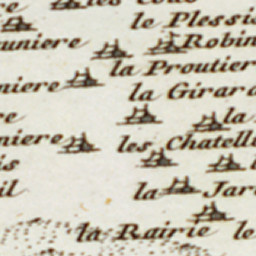 le Plessis
uniere Robin
la Proutier
niere
la Girard
re la
niere les Chatell
is
il la Jar
la Rairie le